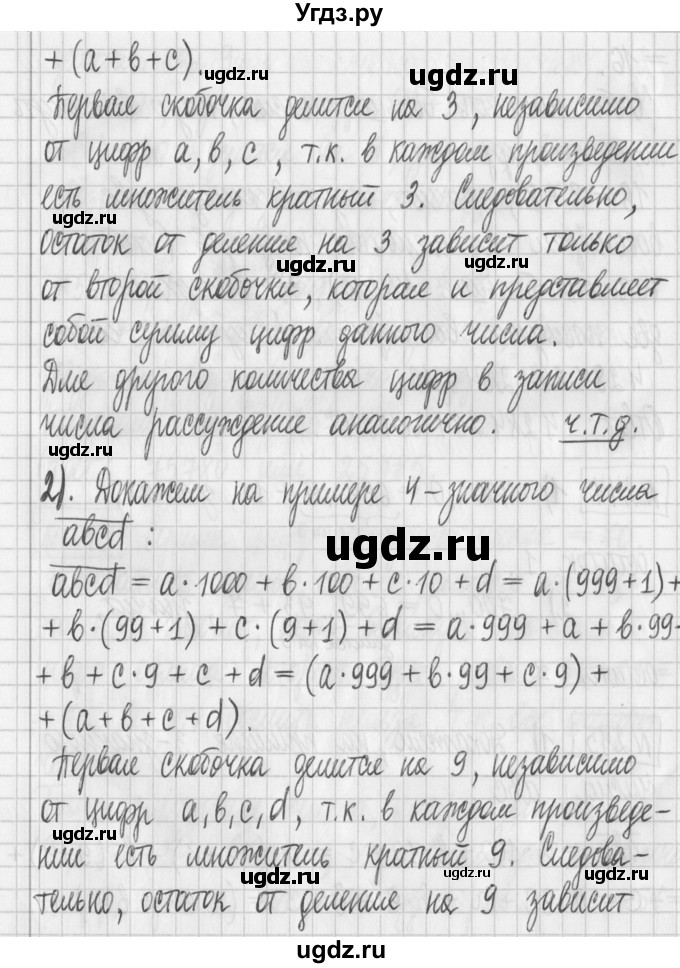 Угдз.ру
+ (a + в + c).
Первая скобочка делится на 3, независимо
от цифр a, в, c, т.к. в каждом произведении
есть множитель кратный 3. Следовательно,
остаток от деления на 3 зависит только
от второй скобочки, которая и представляет
собой сумму цифр данного числа.
Для другого количества цифр в записи
числа рассуждение аналогично. ч.т.д.
2). Докажем на примере 4-значного числа
aвcd :
aвcd = a·1000 + в·100 + c·10 + d = a·(999+1)+
+ в·(99+1) + c·(9+1) + d = a·999 + a + в·99+
+ в + c·9 + c + d = (a·999 + в·99 + c·9) +
+ (a + в + c + d).
Первая скобочка делится на 9, независимо
от цифр a, в, c, d, т.к. в каждом произведе-
нии есть множитель кратный 9. Следова-
тельно, остаток от деления на 9 зависит
ugdz.ru
ugdz.ru
ugdz.ru
ugdz.ru
ugdz.ru
ugdz.ru
ugdz.ru
ugdz.ru
ugdz.ru
ugdz.ru
ugdz.ru
ugdz.ru
ugdz.ru
ugdz.ru